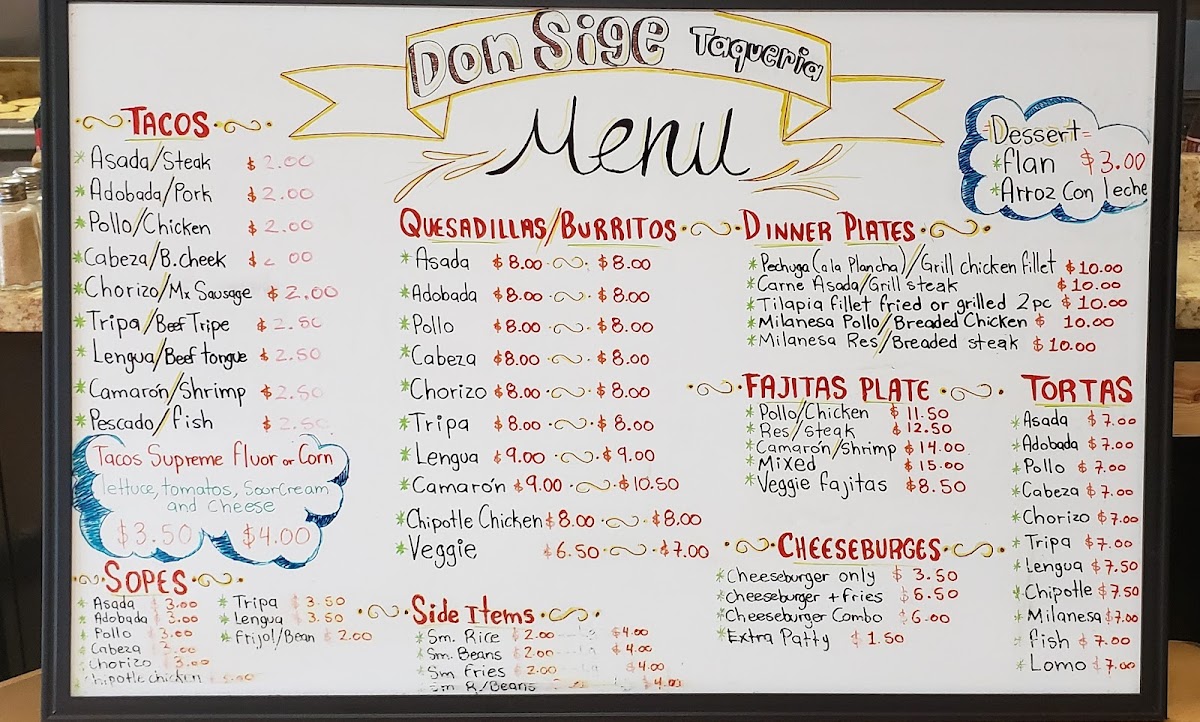 Don Sige Taqueria
Menu
TACOS
*Asada/Steak $2.00
*Adobada/Pork $2.00
*Pollo/Chicken $2.00
*Cabeza/B.cheek $2.00
*Chorizo/Mx Sausage $2.00
*Tripa/Beef Tripe $2.50
*Lengua/Beef tongue $2.50
*Camarón/Shrimp $2.50
*Pescado/fish $2.50
Tacos Supreme Fluor or Corn
lettuce, tomatos, SourCream
and cheese
$3.50 $4.00
SOPES
*Asada $3.00
*Adobada $3.00
*Pollo $3.00
*Cabeza $3.00
*Chorizo $3.00
Chipotle chicken
*Tripa $3.50
*Lengua $3.50
*Frijol/Bean $2.00
QUESADILLAS/BURRITOS
*Asada $8.00 $8.00
*Adobada $8.00 $8.00
*Pollo $8.00 $8.00
*Cabeza $8.00 $8.00
*Chorizo $8.00 $8.00
*Tripa $8.00 $8.00
*Lengua $9.00 $9.00
*Camarón $9.00 $10.50
*Chipotle Chicken $8.00 $8.00
*Veggie $6.50 $7.00
Side Items
*Sm. Rice $2.00 Lg $4.00
*Sm. Beans $2.00 Lg $4.00
*Sm Fries $2.00 $4.00
Sm R./Beans $4.00
Dessert
*flan $3.00
*Arroz Con leche
DINNER PLATES
*Pechuga (a la Plancha)/Grill chicken fillet $10.00
*Carne Asada/Grill steak $10.00
*Tilapia fillet fried or grilled 2pc $10.00
*Milanesa Pollo/Breaded Chicken $10.00
*Milanesa Res/Breaded steak $10.00
FAJITAS PLATE
*Pollo/Chicken $11.50
*Res/steak $12.50
*Camarón/Shrimp $14.00
*Mixed $15.00
*Veggie fajitas $8.50
CHEESEBURGES
*Cheeseburger only $3.50
*cheeseburger + fries $5.50
*Cheeseburger Combo $6.00
*Extra Patty $1.50
TORTAS
*Asada $7.00
*Adobada $7.00
*Pollo $7.00
*Cabeza $7.00
*Chorizo $7.00
*Tripa $7.00
*Lengua $7.50
*Chipotle $7.50
*Milanesa $7.00
*fish $7.00
*Lomo $7.00